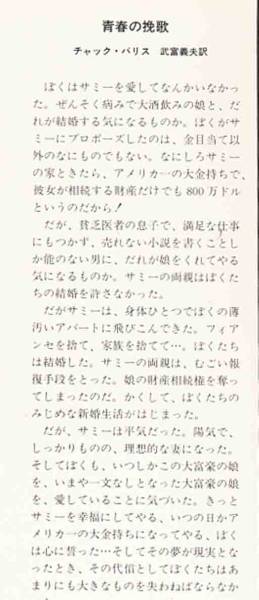 青春の挽歌
チャック・バリス 武富義夫訳
ぼくはサミーを愛してなんかいなかっ
た。ぜんそく病みで大酒飲みの娘と、だ
れが結婚する気になるものか。ぼくがサ
ミーにプロポーズしたのは、金目当て以
外のなにものでもない。なにしろサミー
の家ときたら、アメリカ一の大金持ちで、
彼女が相続する財産だけでも800万ドル
というのだから！
だが、貧乏医者の息子で、満足な仕事
にもつかず、売れない小説を書くことし
か能のない男に、だれが娘をくれてやる
気になるものか。サミーの両親はぼくた
ちの結婚を許さなかった。
だがサミーは、身体ひとつでぼくの薄
汚いアパートに飛びこんできた。フィア
ンセを捨て、家族を捨てて…。ぼくたち
は結婚した。サミーの両親は、むごい報
復手段をとった。娘の財産相続権を奪っ
てしまったのだ。かくして、ぼくたちの
みじめな新婚生活がはじまった。
だが、サミーは平気だった。陽気で、
しっかりものの、理想的な妻になった。
そしてぼくも、いつしかこの大富豪の娘
を、いまや一文なしとなった大富豪の娘
を、愛していることに気づいた。きっと
サミーを幸福にしてやる、いつの日かア
メリカ一の大金持ちになってやる、ぼく
は心に誓った…そしてその夢が現実とな
ったとき、その代償としてぼくたちはあ
まりにも大きなものを失わねばならなか